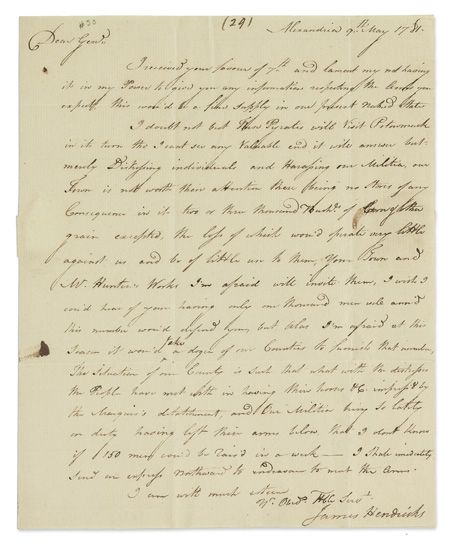 #30
(29)
Alexandria 9th May 1781.
Dear Genl.
I received your favour of 7th. and lament my not having
it in my Power to give you any information respecting the Arms you
expect, this would be a fine supply in our present Naked State
I doubt not but these Pyrates will Visit Potowmack
in it's turn tho I cant see any Valuable end it will answer but
merely Distressing individuals and Harassing our Militia, our
Town is not worth their attention there being no Stores of any
Consequence in it two or three thousand Bushs. of Corn & other
grain excepted, the loss of which wou'd operate very little
against us and be of little use to them, Your Town and
Mr. Hunter's Works I'm afraid will invite them, I wish I
cou'd hear of your having only one thousand men well arm'd
this number wou'd defend you, but alas I'm afraid at this
Season it wou'd take a dozen of our Counties to furnish that number,
The Situation of our County is such that what with the distress
the People have met with in having their horses &c impress'd by
the Marquis's detatchment, and Our Militia being so lately
on duty having left their arms below that I dont know
if 150 men cou'd be Rais'd in a week — I shall immediately
send an express Northward to endeavour to meet the Arms.
I am with much esteem
Yr. Obedt. Hble Servt.
James Hendricks